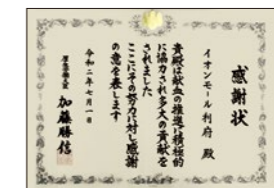 感謝状
イオンモール利府 殿
貴殿は献血の推進に積極的
に協力され多大の貢献を
されました
ここにその努力に対し感謝
の意を表します
令和二年七月一日
厚生労働大臣 加藤勝信